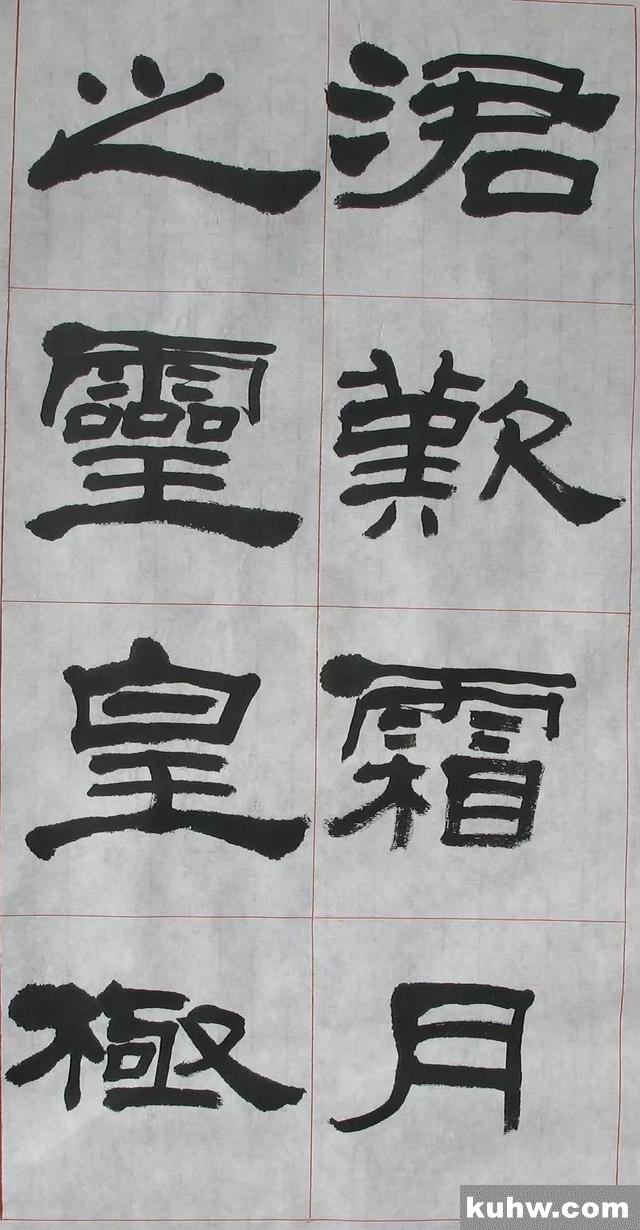 涒歎霜月
之靈皇極
kuhw.com